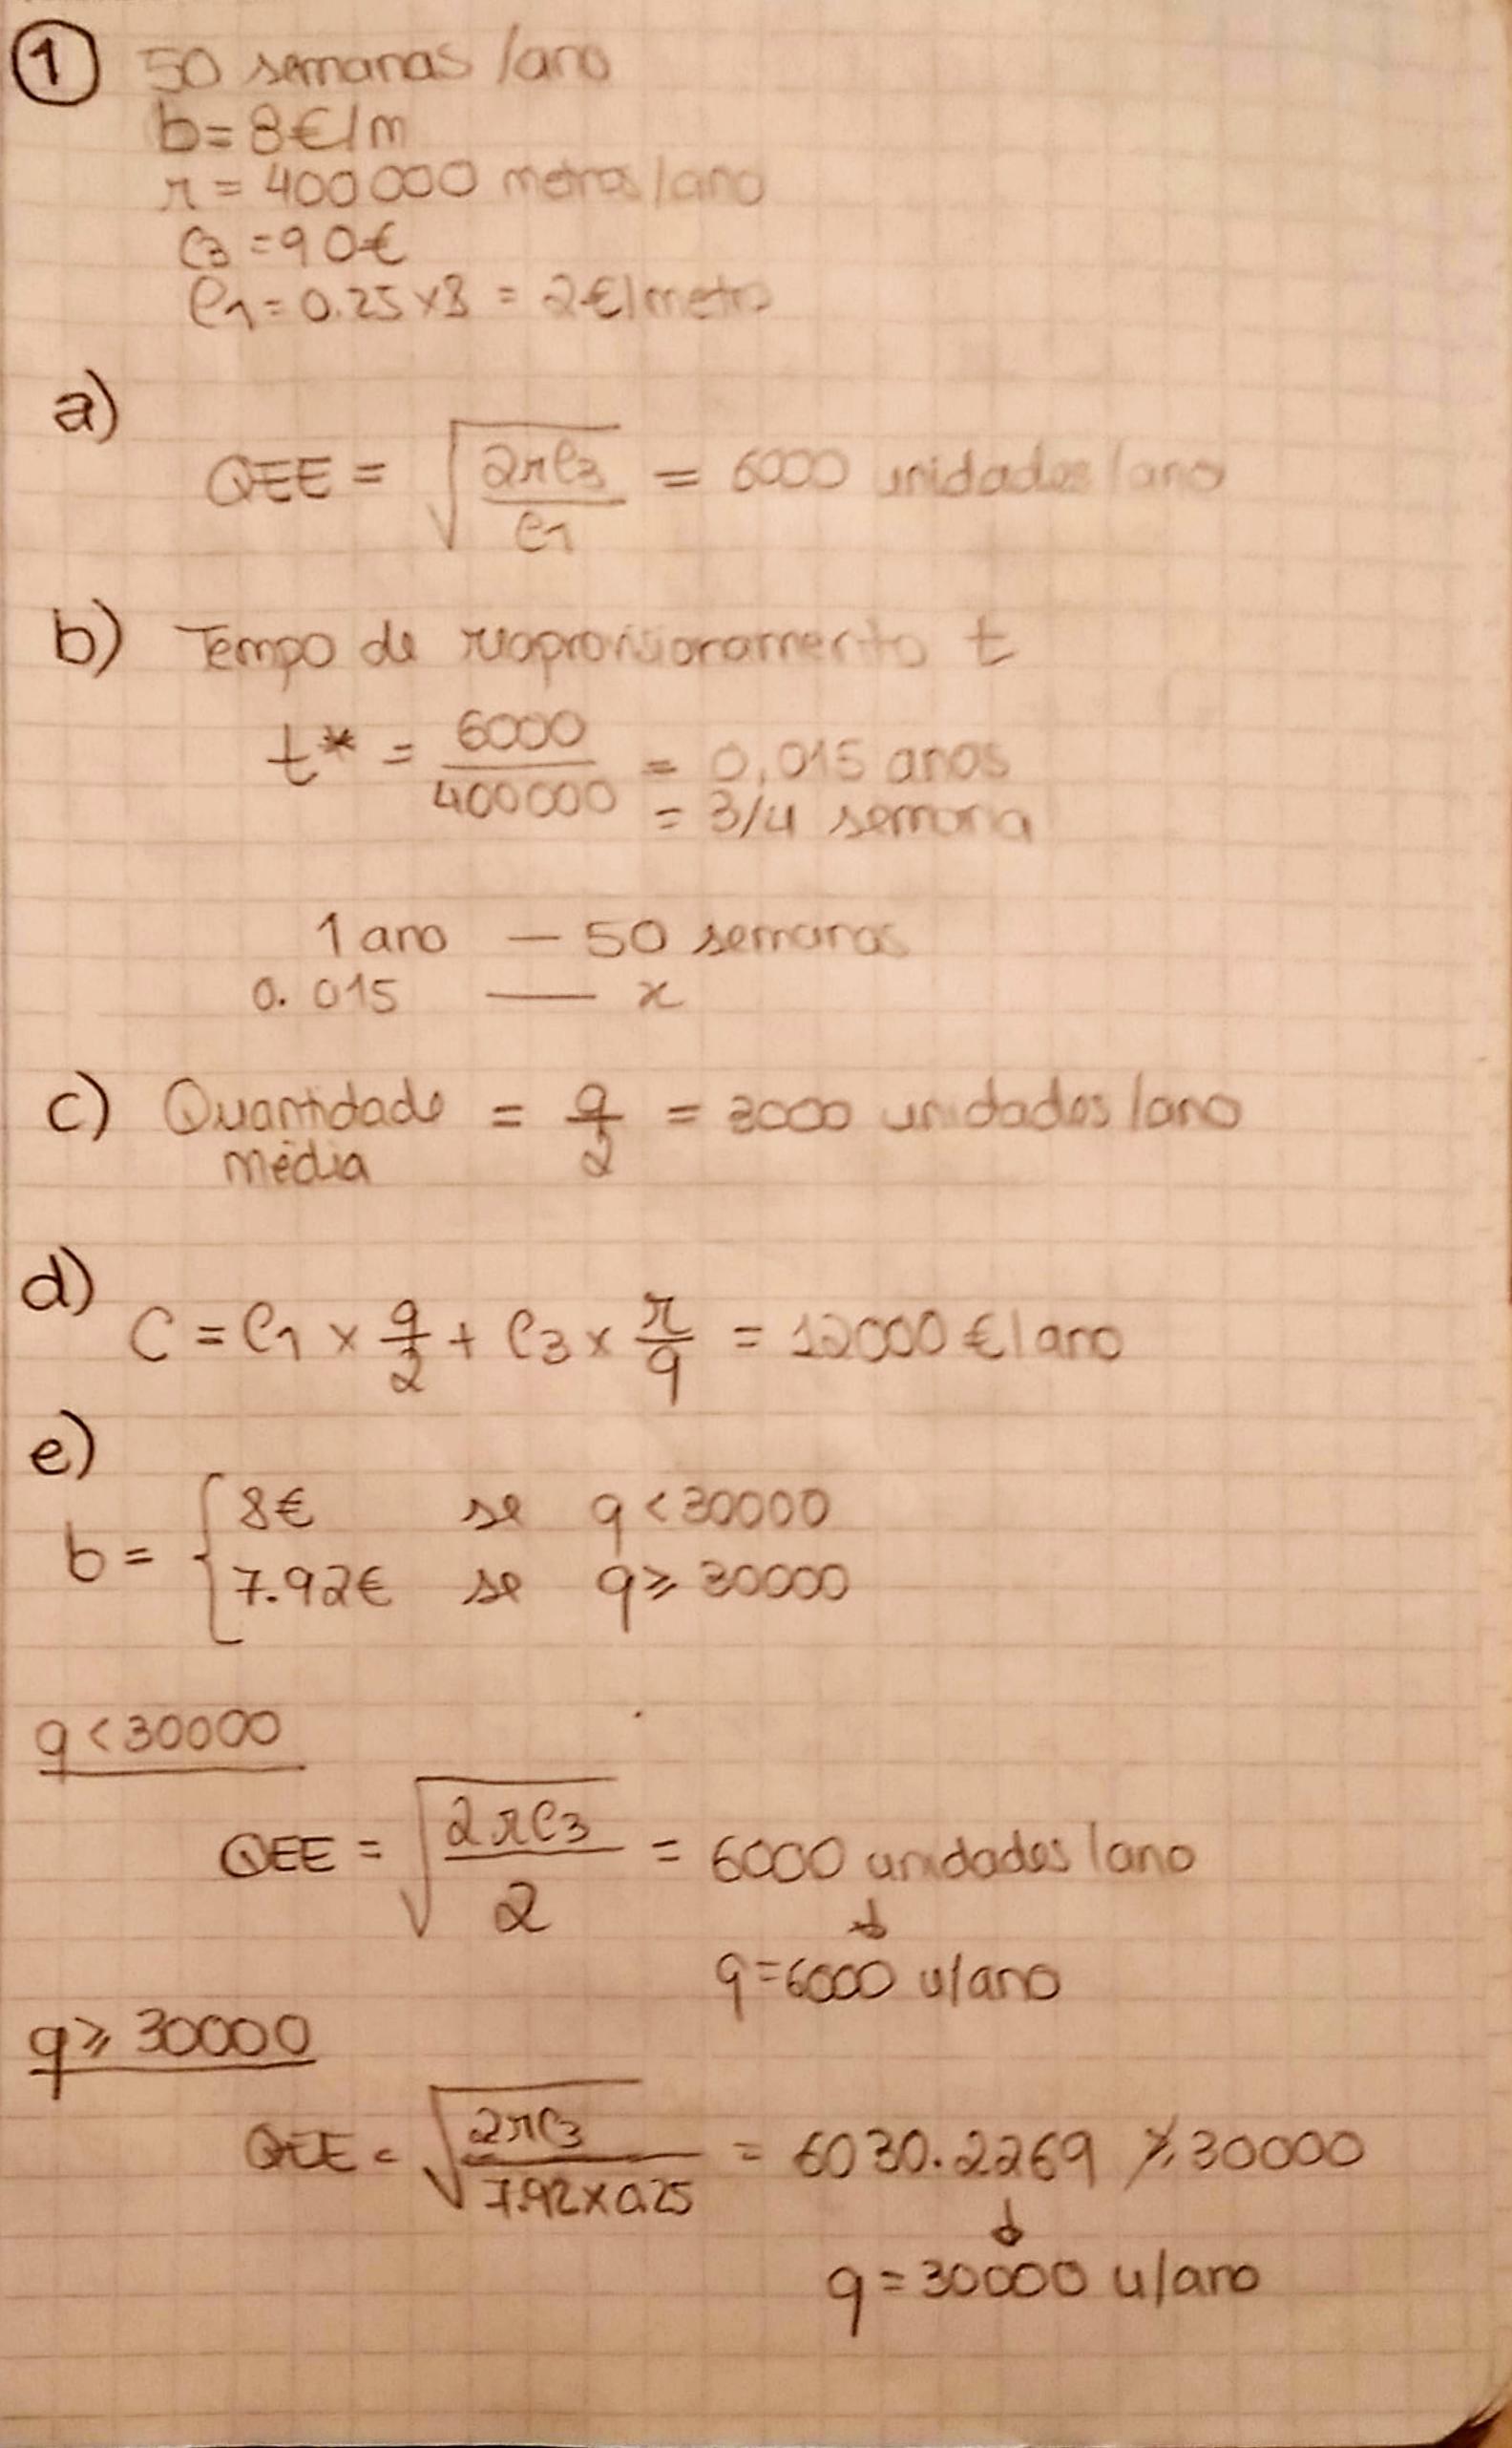 ① 50 semanas /ano
b = 8€/m
r = 400 000 metros/ano
C3 = 90€
C1 = 0.25 x 8 = 2€/metro
a)
QEE = √(2rC3 / C1) = 6000 unidades/ano
b) Tempo de reaprovisionamento t
t* = 6000 / 400000 = 0,015 anos
= 3/4 semana
1 ano — 50 semanas
0.015 — x
c) Quantidade média = q/2 = 3000 unidades/ano
d)
C = C1 x q/2 + C3 x r/q = 12000 €/ano
e)
b = { 8€ se q < 30000
7.92€ se q ≥ 30000
q < 30000
QEE = √(2rC3 / 2) = 6000 unidades/ano
↓
q = 6000 u/ano
q ≥ 30000
QEE = √(2rC3 / 7.92x0.25) = 6030.2269 ≱ 30000
↓
q = 30000 u/ano